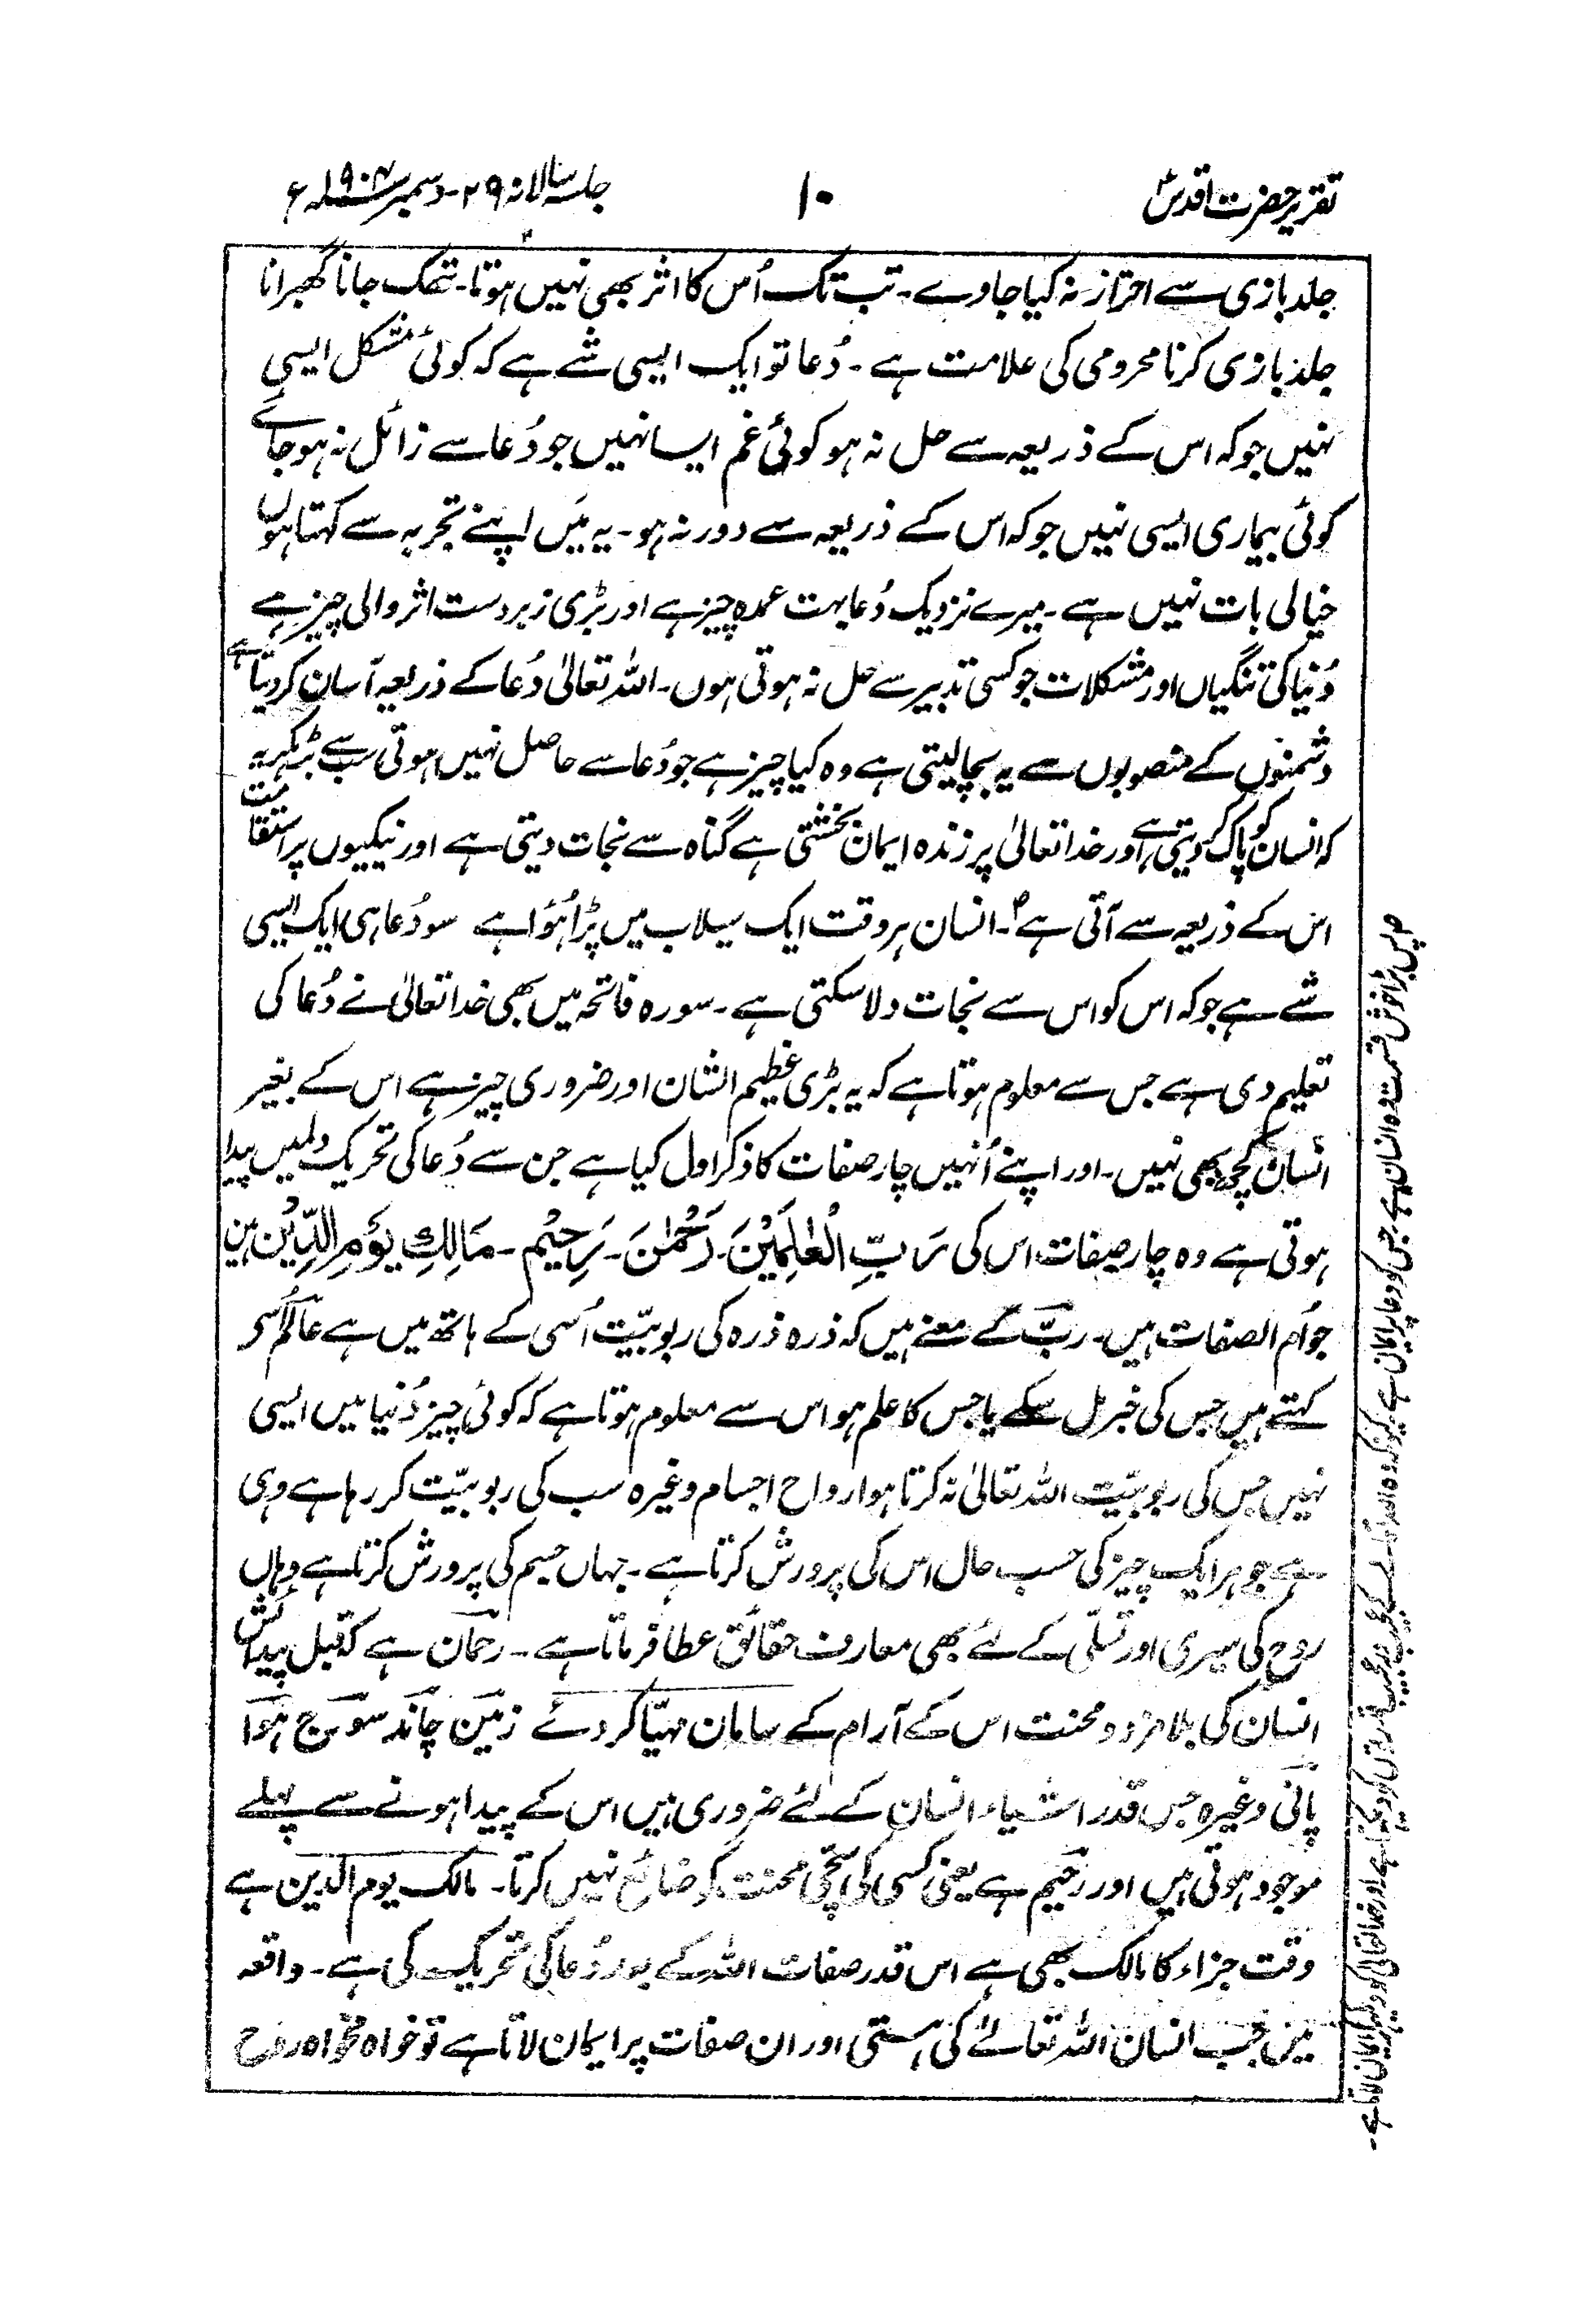 تقریر حضرت اقدسؑ
۱۰
جلسہ سالانہ ۲۹۔ دسمبر سنہ ۱۹۰۴ء
جلد بازی سے احتراز نہ کیا جاوے۔ تب تک اُس کا اثر بھی نہیں ہوتا۔ تھک جانا گھبرانا
جلد بازی کرنا محرومی کی علامت ہے۔ دُعا تو ایک ایسی شے ہے کہ کوئی مشکل ایسی
نہیں جو کہ اس کے ذریعہ سے حل نہ ہو کوئی غم ایسا نہیں جو دُعا سے زائل نہ ہو جائے
کوئی بیماری ایسی نہیں جو کہ اس کے ذریعہ سے دور نہ ہو۔ یہ مَیں اپنے تجربہ سے کہتا ہوں
خیالی بات نہیں ہے۔ میرے نزدیک دُعا بہت عمدہ چیز ہے اور بڑی زبردست اثر والی چیز ہے
دُنیا کی تنگیاں اور مشکلات جو کسی تدبیر سے حل نہ ہوتی ہوں۔ اللہ تعالیٰ دُعا کے ذریعہ آسان کر دیتا ہے
دشمنوں کے منصوبوں سے یہ بچا لیتی ہے وہ کیا چیز ہے جو دُعا سے حاصل نہیں ہوتی سب سے بڑھکر یہ
کہ انسان کو پاک کر دیتی ہے اور خدا تعالیٰ پر زندہ ایمان بخشتی ہے گناہ سے نجات دیتی ہے اور نیکیوں پر استقامت
اس کے ذریعہ سے آتی ہے۔ انسان ہر وقت ایک سیلاب میں پڑا ہُوا ہے سو دُعا ہی ایک ایسی
شے ہے جو کہ اس کو اس سے نجات دلا سکتی ہے۔ سورہ فاتحہ میں بھی خدا تعالیٰ نے دُعا کی
تعلیم دی ہے جس سے معلوم ہوتا ہے کہ یہ بڑی عظیم الشان اور ضروری چیز ہے اس کے بغیر
انسان کچھ بھی نہیں۔ اور اپنے اُنہیں چار صفات کا ذکر اول کیا ہے جن سے دُعا کی تحریک دلمیں پیدا
ہوتی ہے وہ چار صفات اس کی رَبِّ الْعٰلَمِیْنَ۔ رَحْمٰنَ۔ رَحِیْم۔ مَالِكِ یَوْمِ الدِّیْن ہیں
جو اُم الصفات ہیں۔ ربّ کے معنے ہیں کہ ذرہ ذرہ کی ربوبیّت اُسی کے ہاتھ میں ہے عالَم اُسے
کہتے ہیں جس کی خبر مل سکے یا جس کا علم ہو اس سے معلوم ہوتا ہے کہ کوئی چیز دُنیا میں ایسی
نہیں جس کی ربوبیّت اللہ تعالیٰ نہ کرتا ہو ارواح اجسام وغیرہ سب کی ربوبیّت کر رہا ہے وہی
ہے جو ہر ایک چیز کی حسب حال اس کی پرورش کرتا ہے۔ جہاں جسم کی پرورش کرتا ہے وہاں
روح کی سیری اور تسلّی کے لئے بھی معارف حقائق عطا فرماتا ہے۔ رحمان ہے کہ قبل پیدائش
انسان کی بلا مزد و محنت اس کے آرام کے سامان مہیّا کر دئے زمین چاند سورج ہوا
پانی وغیرہ جس قدر اشیاء انسان کے لئے ضروری ہیں اس کے پیدا ہونے سے پہلے
موجود ہوتی ہیں اور رحیم ہے یعنی کسی کی سچّی محنت کو ضائع نہیں کرتا۔ مالک یوم الدین ہے
وقت جزاء کا مالک بھی ہے اس قدر صفات اللہ کے بعد دُعا کی تحریک کی ہے۔ واقعہ
میں جب انسان اللہ تعالےٰ کی ہستی اور ان صفات پر ایمان لاتا ہے تو خواہ مخواہ روح
بڑا خوش قسمت وہ انسان ہے جس کو دعا پر ایمان ہے کیونکہ وہ اللہ تعالے کی عجیب در عجیب قدرتوں کو دیکھتا ہے اور خدا تعالیٰ کو دیکھ کر ایمان لاتا ہے۔